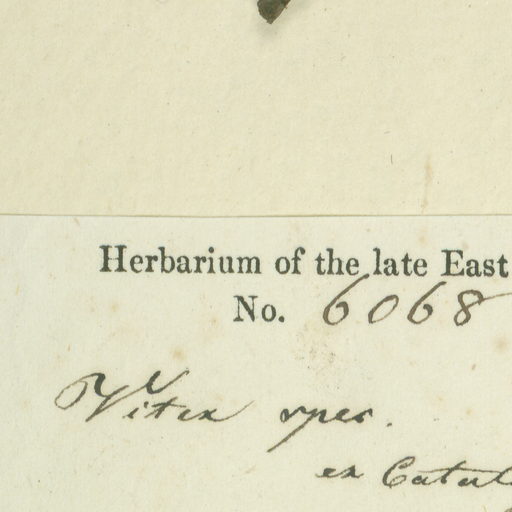 Herbarium of the late East
No. 6068
Vitex spec.
ex